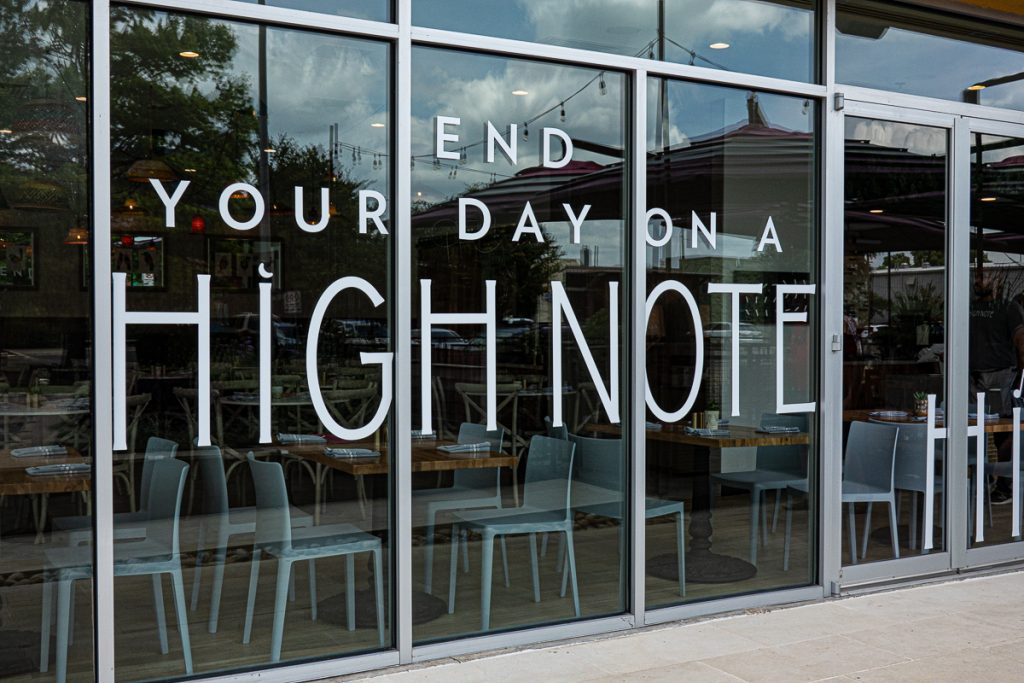 END
YOUR DAY ON A
HIGH NOTE
HI